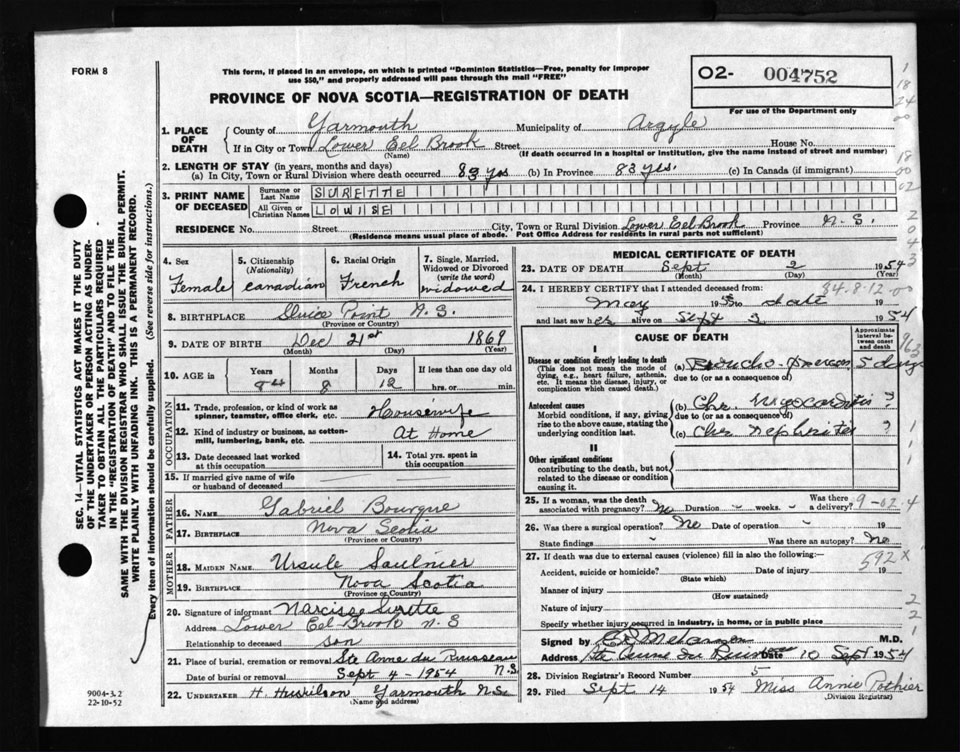 FORM 8
This form, if placed in an envelope, on which is printed "Dominion Statistics—Free, penalty for improper
use $50," and properly addressed will pass through the mail "FREE"
PROVINCE OF NOVA SCOTIA—REGISTRATION OF DEATH
O2- 004752
For use of the Department only
1. PLACE OF DEATH { County of Yarmouth Municipality of Argyle
If in City or Town Lower Eel Brook Street House No.
(Name) (If death occurred in a hospital or institution, give the name instead of street and number)
2. LENGTH OF STAY (in years, months and days)
(a) In City, Town or Rural Division where death occurred 83 yrs (b) In Province 83 yrs. (c) In Canada (if immigrant)
3. PRINT NAME OF DECEASED { Surname or Last Name SURETTE
All Given or Christian Names LOUISE
RESIDENCE No. Street City, Town or Rural Division Lower Eel Brook Province N.S.
(Residence means usual place of abode. Post Office Address for residents in rural parts not sufficient)
4. Sex Female
5. Citizenship (Nationality) Canadian
6. Racial Origin French
7. Single, Married, Widowed or Divorced (write the word) widowed
8. BIRTHPLACE Point N.S.
(Province or Country)
9. DATE OF BIRTH Dec 21st 1869
(Month) (Day) (Year)
10. AGE in Years Months Days If less than one day
84 8 12 hrs. or min.
OCCUPATION
11. Trade, profession, or kind of work as spinner, teamster, office clerk, etc. Housewife
12. Kind of industry or business, as cotton-mill, lumbering, bank, etc. At Home
13. Date deceased last worked at this occupation
14. Total yrs. spent in this occupation
15. If married give name of wife or husband of deceased
FATHER
16. NAME Gabriel Bourque
17. BIRTHPLACE Nova Scotia
(Province or Country)
MOTHER
18. MAIDEN NAME Ursule Saulnier
19. BIRTHPLACE Nova Scotia
(Province or Country)
20. Signature of informant Narcisse Surette
Address Lower Eel Brook N S
Relationship to deceased son
21. Place of burial, cremation or removal Ste Anne du Ruisseau N.S.
Date of burial or removal Sept 4 - 1954
22. UNDERTAKER H. Huskilson Yarmouth N.S.
(Name and address)
MEDICAL CERTIFICATE OF DEATH
23. DATE OF DEATH Sept 2 1954
(Month) (Day) (Year)
24. I HEREBY CERTIFY that I attended deceased from:
84.8.12
May 19 to date 19
and last saw her alive on Sept 2 1954
CAUSE OF DEATH
Approximate interval between onset and death
I
Disease or condition directly leading to death
(This does not mean the mode of dying, e.g., heart failure, asthenia, etc. It means the disease, injury, or complication which caused death.)
(a) 5 days
due to (or as a consequence of)
Antecedent causes
Morbid conditions, if any, giving rise to the above cause, stating the underlying condition last.
(b) Chr. Myocarditis ?
due to (or as a consequence of)
(c) Chr Nephritis ?
II
Other significant conditions
contributing to the death, but not related to the disease or condition causing it.
25. If a woman, was the death associated with pregnancy? No Duration - weeks. - Was there a delivery?
9-02.4
26. Was there a surgical operation? No Date of operation - 19
State findings - Was there an autopsy? No
27. If death was due to external causes (violence) fill in also the following:—
592 X
Accident, suicide or homicide? Date of injury 19
(State which)
Manner of injury
(How sustained)
Nature of injury
Specify whether injury occurred in industry, in home, or in public place
Signed by M.D.
Address Ste Anne Du Ruisseau Date 10 Sept 1954
28. Division Registrar's Record Number 5
29. Filed Sept 14 1954 Miss Annie Pothier
(Division Registrar)
SEC. 14—VITAL STATISTICS ACT MAKES IT THE DUTY
OF THE UNDERTAKER OR PERSON ACTING AS UNDER-
TAKER TO OBTAIN ALL THE PARTICULARS REQUIRED
IN THE "REGISTRATION OF DEATH" AND TO FILE THE
SAME WITH THE DIVISION REGISTRAR WHO SHALL ISSUE THE BURIAL PERMIT.
WRITE PLAINLY WITH UNFADING INK. THIS IS A PERMANENT RECORD.
Every item of information should be carefully supplied. (See reverse side for instructions.)
9004-3.2
22-10-52